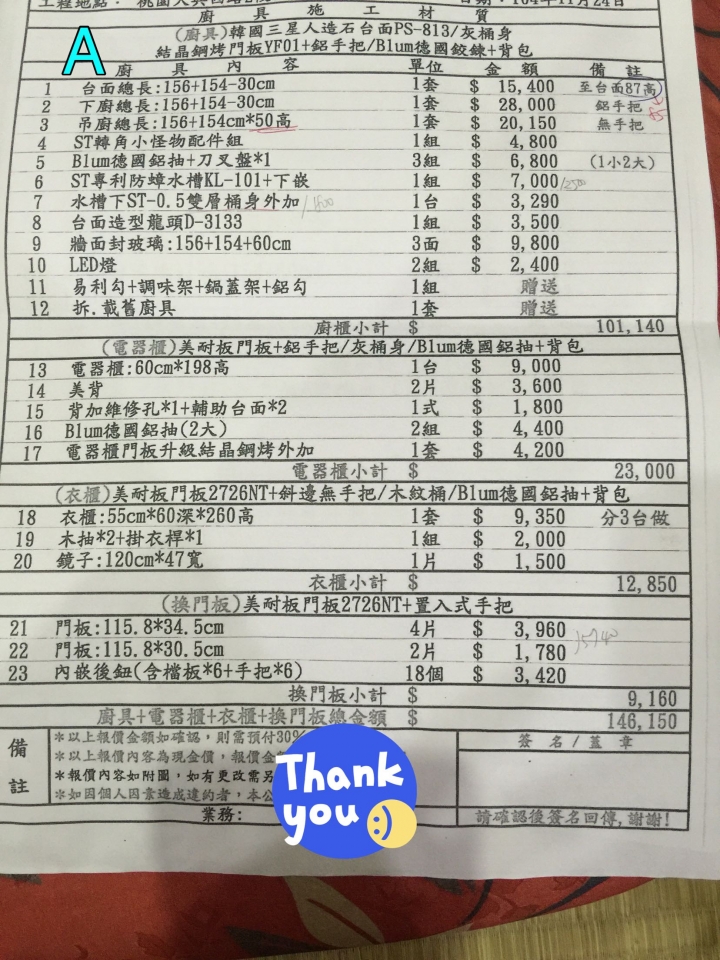 工程地點： 桃園大興西路2段 日期：104年11月24日
廚具施工材質
A
(廚具)韓國三星人造石台面PS-813/灰桶身
結晶鋼烤門板YF01+鋁手把/Blum德國鉸鍊+背包
廚具內容 單位 金額 備註
1 台面總長:156+154-30cm 1套 $ 15,400 至台面87高
2 下廚總長:156+154-30cm 1套 $ 28,000 鋁手把
3 吊廚總長:156+154cm*50高 1套 $ 20,150 無手把
4 ST轉角小怪物配件組 1組 $ 4,800
5 Blum德國鋁抽+刀叉盤*1 3組 $ 6,800 (1小2大)
6 ST專利防蟑水槽KL-101+下嵌 1組 $ 7,000 /2500
7 水槽下ST-0.5雙層桶身外加 /1600 1台 $ 3,290
8 台面造型龍頭D-3133 1組 $ 3,500
9 牆面封玻璃:156+154+60cm 3面 $ 9,800
10 LED燈 2組 $ 2,400
11 易利勾+調味架+鍋蓋架+鋁勾 1組 贈送
12 拆.載舊廚具 1套 贈送
廚櫃小計 $ 101,140
(電器櫃)美耐板門板+鋁手把/灰桶身/Blum德國鋁抽+背包
13 電器櫃:60cm*198高 1台 $ 9,000
14 美背 2片 $ 3,600
15 背加維修孔*1+輔助台面*2 1式 $ 1,800
16 Blum德國鋁抽(2大) 2組 $ 4,400
17 電器櫃門板升級結晶鋼烤外加 1套 $ 4,200
電器櫃小計 $ 23,000
(衣櫃)美耐板門板2726NT+斜邊無手把/木紋桶/Blum德國鋁抽+背包
18 衣櫃:55cm*60深*260高 1套 $ 9,350 分3台做
19 木抽*2+掛衣桿*1 1組 $ 2,000
20 鏡子:120cm*47寬 1片 $ 1,500
衣櫃小計 $ 12,850
(換門板)美耐板門板2726NT+置入式手把
21 門板:115.8*34.5cm 4片 $ 3,960
22 門板:115.8*30.5cm 2片 $ 1,780
23 內嵌後鈕(含檔板*6+手把*6) 18個 $ 3,420
換門板小計 $ 9,160
廚具+電器櫃+衣櫃+換門板總金額 $ 146,150
備註
*以上報價金額如確認，則需預付30%
*以上報價內容為現金價，報價金
*報價內容如附圖，如有更改需另
*如因個人因素造成違約者，本公
簽名/蓋章
Thank
you :)
業務:
請確認後簽名回傳,謝謝!